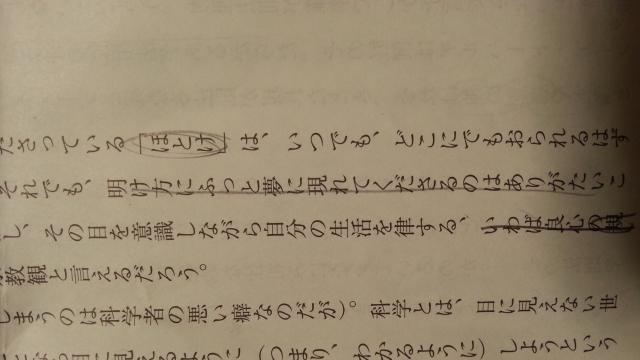 ださっている「ほとけ」は、いつでも、どこにでもおられるはず
それでも、明け方にふっと夢に現れてくださるのはありがたいこ
し、その目を意識しながら自分の生活を律する、いわば良心の
教観と言えるだろう。
しまうのは科学者の悪い癖なのだが)。科学とは、目に見えない世
目に見えるように(つまり、わかるように)しようという